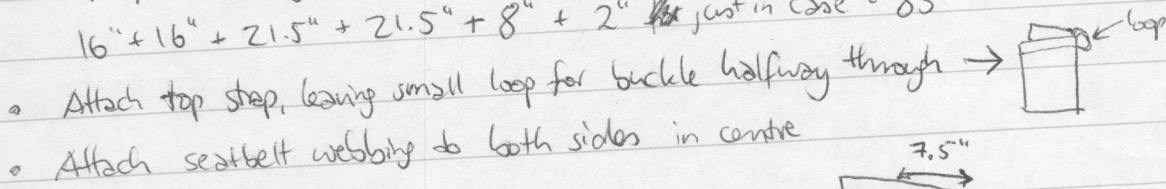 16" + 16" + 21.5" + 21.5" + 8" + 2" just in case
loop
• Attach top strap, leaving small loop for buckle halfway through →
• Attach seatbelt webbing to both sides in centre
7.5"